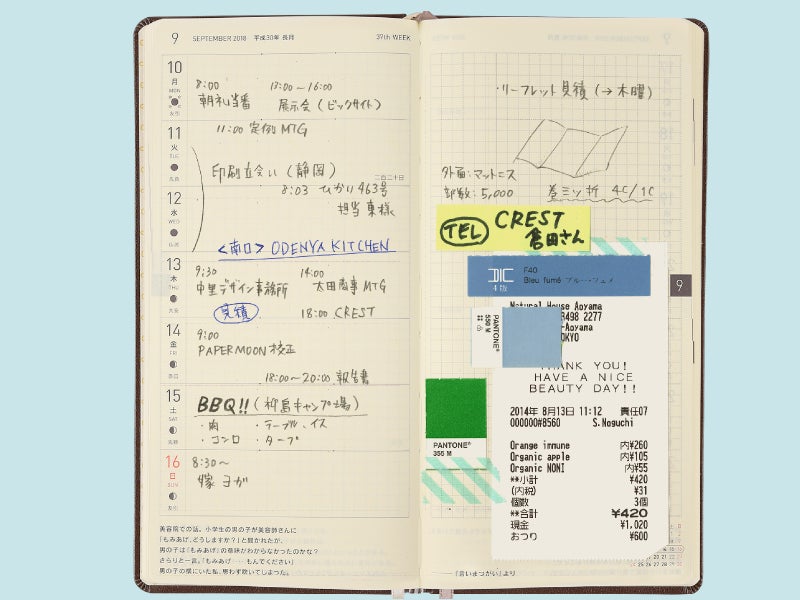 9 SEPTEMBER 2018 平成30年 長月 37th WEEK
10
月
MON
友引
8:00 13:00〜16:00
朝礼当番 展示会（ビックサイト）
11
火
TUE
先負
11:00 定例MTG
印刷立会い（静岡）
二百二十日
8:03 ひかり463号
担当 東様
12
水
WED
仏滅
<南口> ODENYA KITCHEN
13
木
THU
大安
9:30 14:00
中里デザイン事務所 太田商事MTG
見積 18:00 CREST
14
金
FRI
赤口
9:00
PAPERMOON校正
18:00〜20:00 報告書
15
土
SAT
先勝
BBQ!!（柳島キャンプ場）
・肉 ・テーブル、イス
・コンロ ・タープ
16
日
SUN
友引
8:30〜
嫁 ヨガ
美容院での話。小学生の男の子が美容師さんに
「もみあげ、どうしますか?」と聞かれたが、
男の子は「もみあげ」の意味がわからなかったのかな?
さらりと一言。「もみあげ……もんでください」
男の子の横にいた私、思わず吹いてしまった。
・リーフレット見積（→木曜）
外面:マットニス
部数:5,000 巻三ツ折 4C/1C
TEL CREST
倉田さん
DIC
4版
F40
Bleu fumé ブルー・フュメ
9
Natural House Aoyama
3498 2277
-Aoyama
OKYO
PANTONE®
550 M
THANK YOU!
HAVE A NICE
BEAUTY DAY!!
2014年 8月13日 11:12 責任07
000000#8560 S.Noguchi
Orange immune 内¥260
Organic apple 内¥105
Organic NONI 内¥55
**小計 ¥420
(内税) ¥31
個数 3個
**合計 ¥420
現金 ¥1,020
おつり ¥600
PANTONE®
355 M
『言いまつがい』より